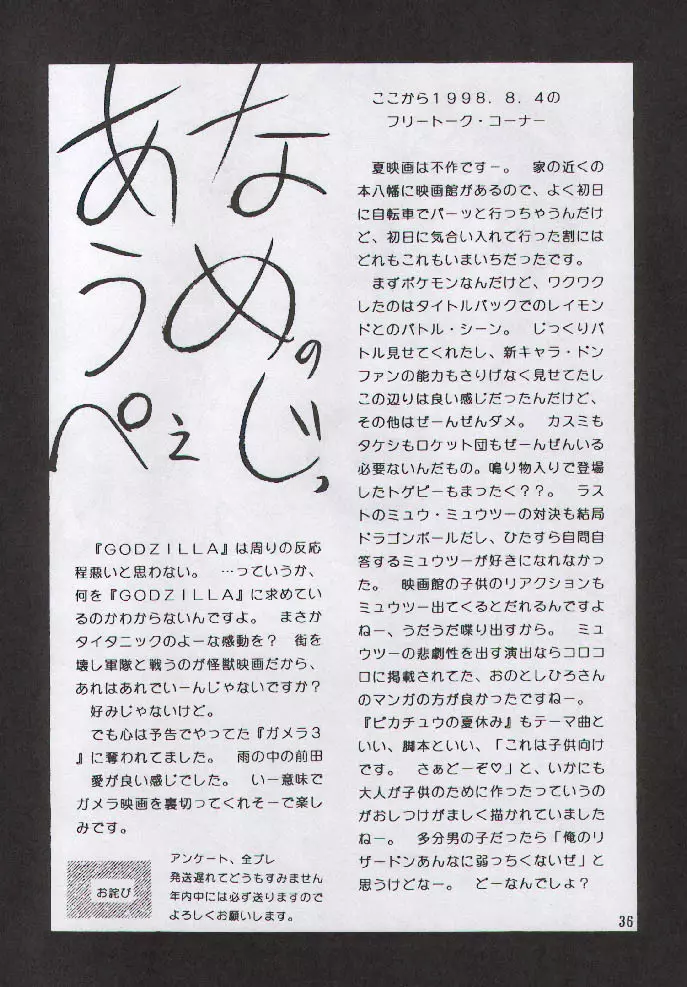 なめの
あうぺぇじっ
ここから1998．8．4の
フリートーク・コーナー
夏映画は不作ですー。　家の近くの
本八幡に映画館があるので、よく初日
に自転車でパーッと行っちゃうんだけ
ど、初日に気合い入れて行った割には
どれもこれもいまいちだったです。
まずポケモンなんだけど、ワクワク
したのはタイトルバックでのレイモン
ドとのバトル・シーン。　じっくりバ
トル見せてくれたし、新キャラ・ドン
ファンの能力もさりげなく見せてたし
この辺りは良い感じだったんだけど、
その他はぜーんぜんダメ。　カスミも
タケシもロケット団もぜーんぜんいる
必要ないんだもの。鳴り物入りで登場
したトゲピーもまったく？？。　ラス
トのミュウ・ミュウツーの対決も結局
ドラゴンボールだし、ひたすら自問自
答するミュウツーが好きになれなかっ
た。　映画館の子供のリアクションも
ミュウツー出てくるとだれるんですよ
ねー、うだうだ喋り出すから。　ミュ
ウツーの悲劇性を出す演出ならコロコ
ロに掲載されてた、おのとしひろさん
のマンガの方が良かったですねー。
『ピカチュウの夏休み』もテーマ曲と
いい、脚本といい、「これは子供向け
です。　さぁどーぞ♡」と、いかにも
大人が子供のために作ったっていうの
がおしつけがましく描かれていました
ねー。　多分男の子だったら「俺のリ
ザードンあんなに弱っちくないぜ」と
思うけどなー。　どーなんでしょ？
『GODZILLA』は周りの反応
程悪いと思わない。　…っていうか、
何を『GODZILLA』に求めてい
るのかわからないんですよ。　まさか
タイタニックのよーな感動を？　街を
壊し軍隊と戦うのが怪獣映画だから、
あれはあれでいーんじゃないですか？
好みじゃないけど。
でも心は予告でやってた『ガメラ3
』に奪われてました。　雨の中の前田
愛が良い感じでした。　いー意味で
ガメラ映画を裏切ってくれそーで楽し
みです。
お詫び
アンケート、全プレ
発送遅れてどうもすみません
年内中には必ず送りますので
よろしくお願いします。
36